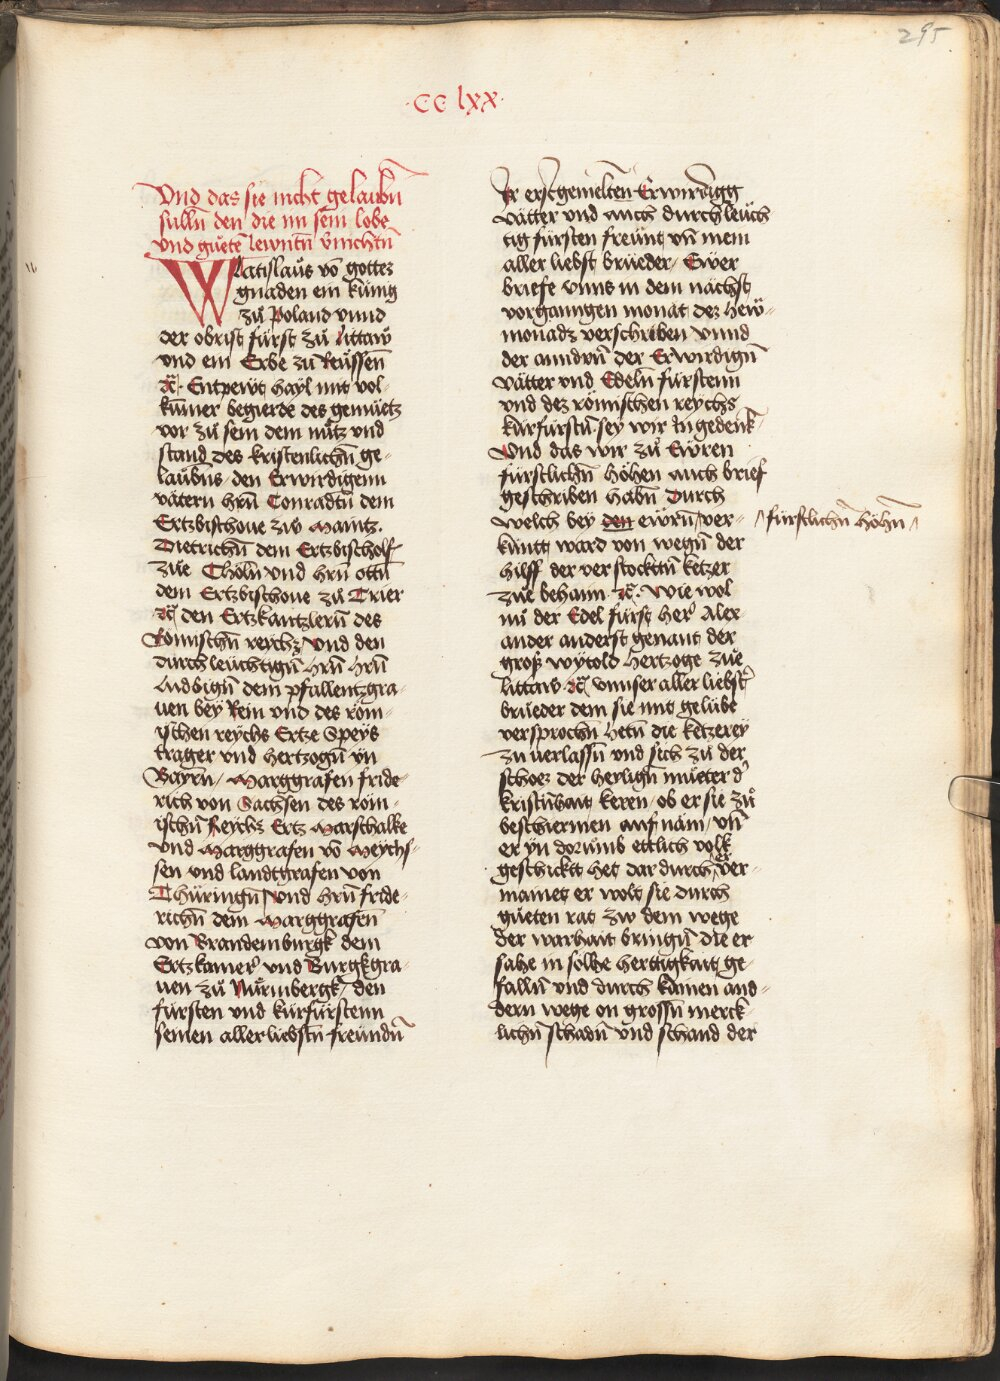 295
·CC lxx·
Vnd das sie nicht gelaubn̄
sulln̄ den die im sein lobe
vnd guete lewntn̄ v̄nichtn̄
Wlatislaus vō gottez
gnaden ein künig
zu Poland vnnd
der obrist fürst zu littaw
vnd ein Erbe zu Reüssen̄
ꝛc̄. Entpewt hayl mit vol-
kumer begierde des gemüetz
vor zu sein dem nutz vnd
stand des kristenlichn̄ ge-
laubns / den Erwirdigenn
vätern hrn̄ Conradtn̄ dem
Ertzbischoue zw Maintz.
Dietrichn̄ dem Ertzbischolf
zue Choln̄ vnd hrn̄ ottn̄
dem Ertzbischoue zu Trier
ꝛc̄ den Ertzkantzlern̄ des
Römischn̄ reychz / vnd den
durchleuchtign̄ hrn̄ hrn̄
Ludbign̄ dem pfallentzgra-
uen bey Rein vnd des röm-
ischen reychs Ertze Speys
trager vnd hertzogn̄ yn
Bayrn̄ / Marggrafen fride-
rich von Sachsen des röm-
ischn̄ Reychs Ertz Marschalke
vnd Marggrafen vō Meychs-
sen vnd landtgrafen von
Thüringn̄ / vnd hrn̄ fride-
richn̄ dem Marggrafen̄
von Brandemburgk dem
Ertzkamer' vnd Burgkgra-
uen zu Nürmbergk / den
fürsten vnd kürfürstenn
seinen allerliebstn̄ freündn̄
Ir erstgemelten̄ Erwirdigg
vätter vnd auch durchleüch
tig fürsten freünt vn̄ mein
aller liebst brüeder / Ewer
briefe vnns in dem nächst
vorganngen monat dez hew-
monadz verschriben vnnd
der anndrn̄ der Erwirdign̄
vätter vnd Edeln̄ fürstenn
vnd dez römischen reychs
kurfürstn̄ sey wir Ingedenk
Vnd das wir zu Ewren
fürstlichn̄ höhen auch brief
geschriben habn̄ durch
welch bey den ewrn̄ / ver-
künt ward von wegn̄ der
hilff der verstocktn̄ ketzer
zue behann ꝛc̄. Wie wol
nu der Edel fürst her' Alex-
ander anderst genant der
groß wytold hertzoge zue
littaw ꝛc̄ vnnser aller liebst'
brüeder dem sie mit gelübe
versprochn̄ hetn̄ die ketzerey
zu uerlassn̄ vnd sich zu der
schoez der heylign̄ müeter d'
kristnhait keren / ob er sie zu
beschiermen aufnäm / vn̄
er yn dorumb ettlich volk
geschickt het dar durch er ver-
mainet er wolt sie durch
güeten rat zw dem wege
der warhait bringn̄ die er
sahe in solhe hertigkait ge-
falln̄ vnd durch kainen and-
dern wege on grossn̄ merck-
lichn̄ schadn̄ vnd schand der
fürstlichn̄ höhn̄